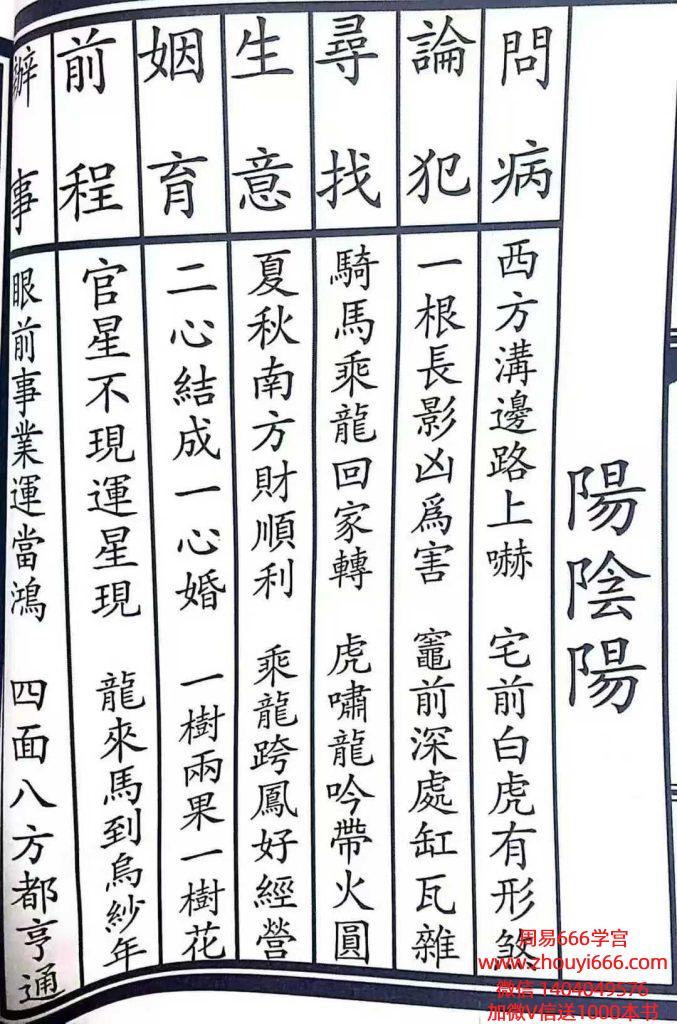 陽陰陽
問病
西方溝邊路上嚇 宅前白虎有形煞
論犯
一根長影凶爲害 竈前深處缸瓦雜
尋找
騎馬乘龍回家轉 虎嘯龍吟帶火圓
生意
夏秋南方財順利 乘龍跨鳳好經營
姻育
二心結成一心婚 一樹兩果一樹花
前程
官星不現運星現 龍來馬到烏紗年
辦事
眼前事業運當鴻 四面八方都亨通
周易666学宫
www.zhouyi666.com
微信 1404049576
加微V信送1000本书